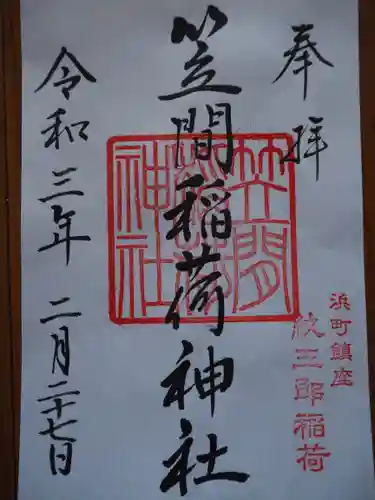 奉拝
浜町鎮座
紋三郎稲荷
笠間稲荷神社
笠間稲荷神社
令和三年 二月二十七日